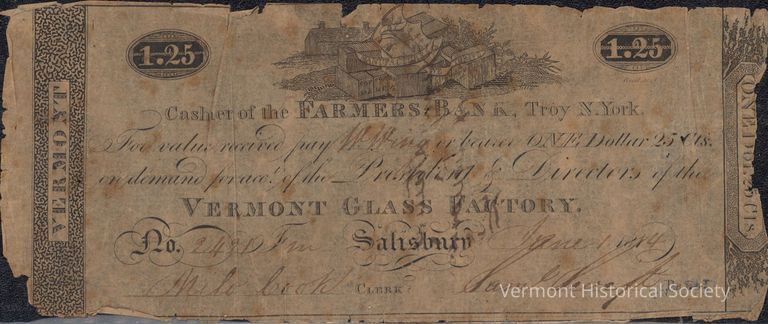 1.25 1.25
VERMONT
Cashier of the FARMERS BANK, Troy N.York.
For value received pay or bearer ONE Dollar 25 Cts.
on demand for acct. of the President & Directors of the
VERMONT GLASS FACTORY.
No. Salisbury June 1. 1814
Milo Cook CLERK
ONE Dol. 25 Cts.
Vermont Historical Society